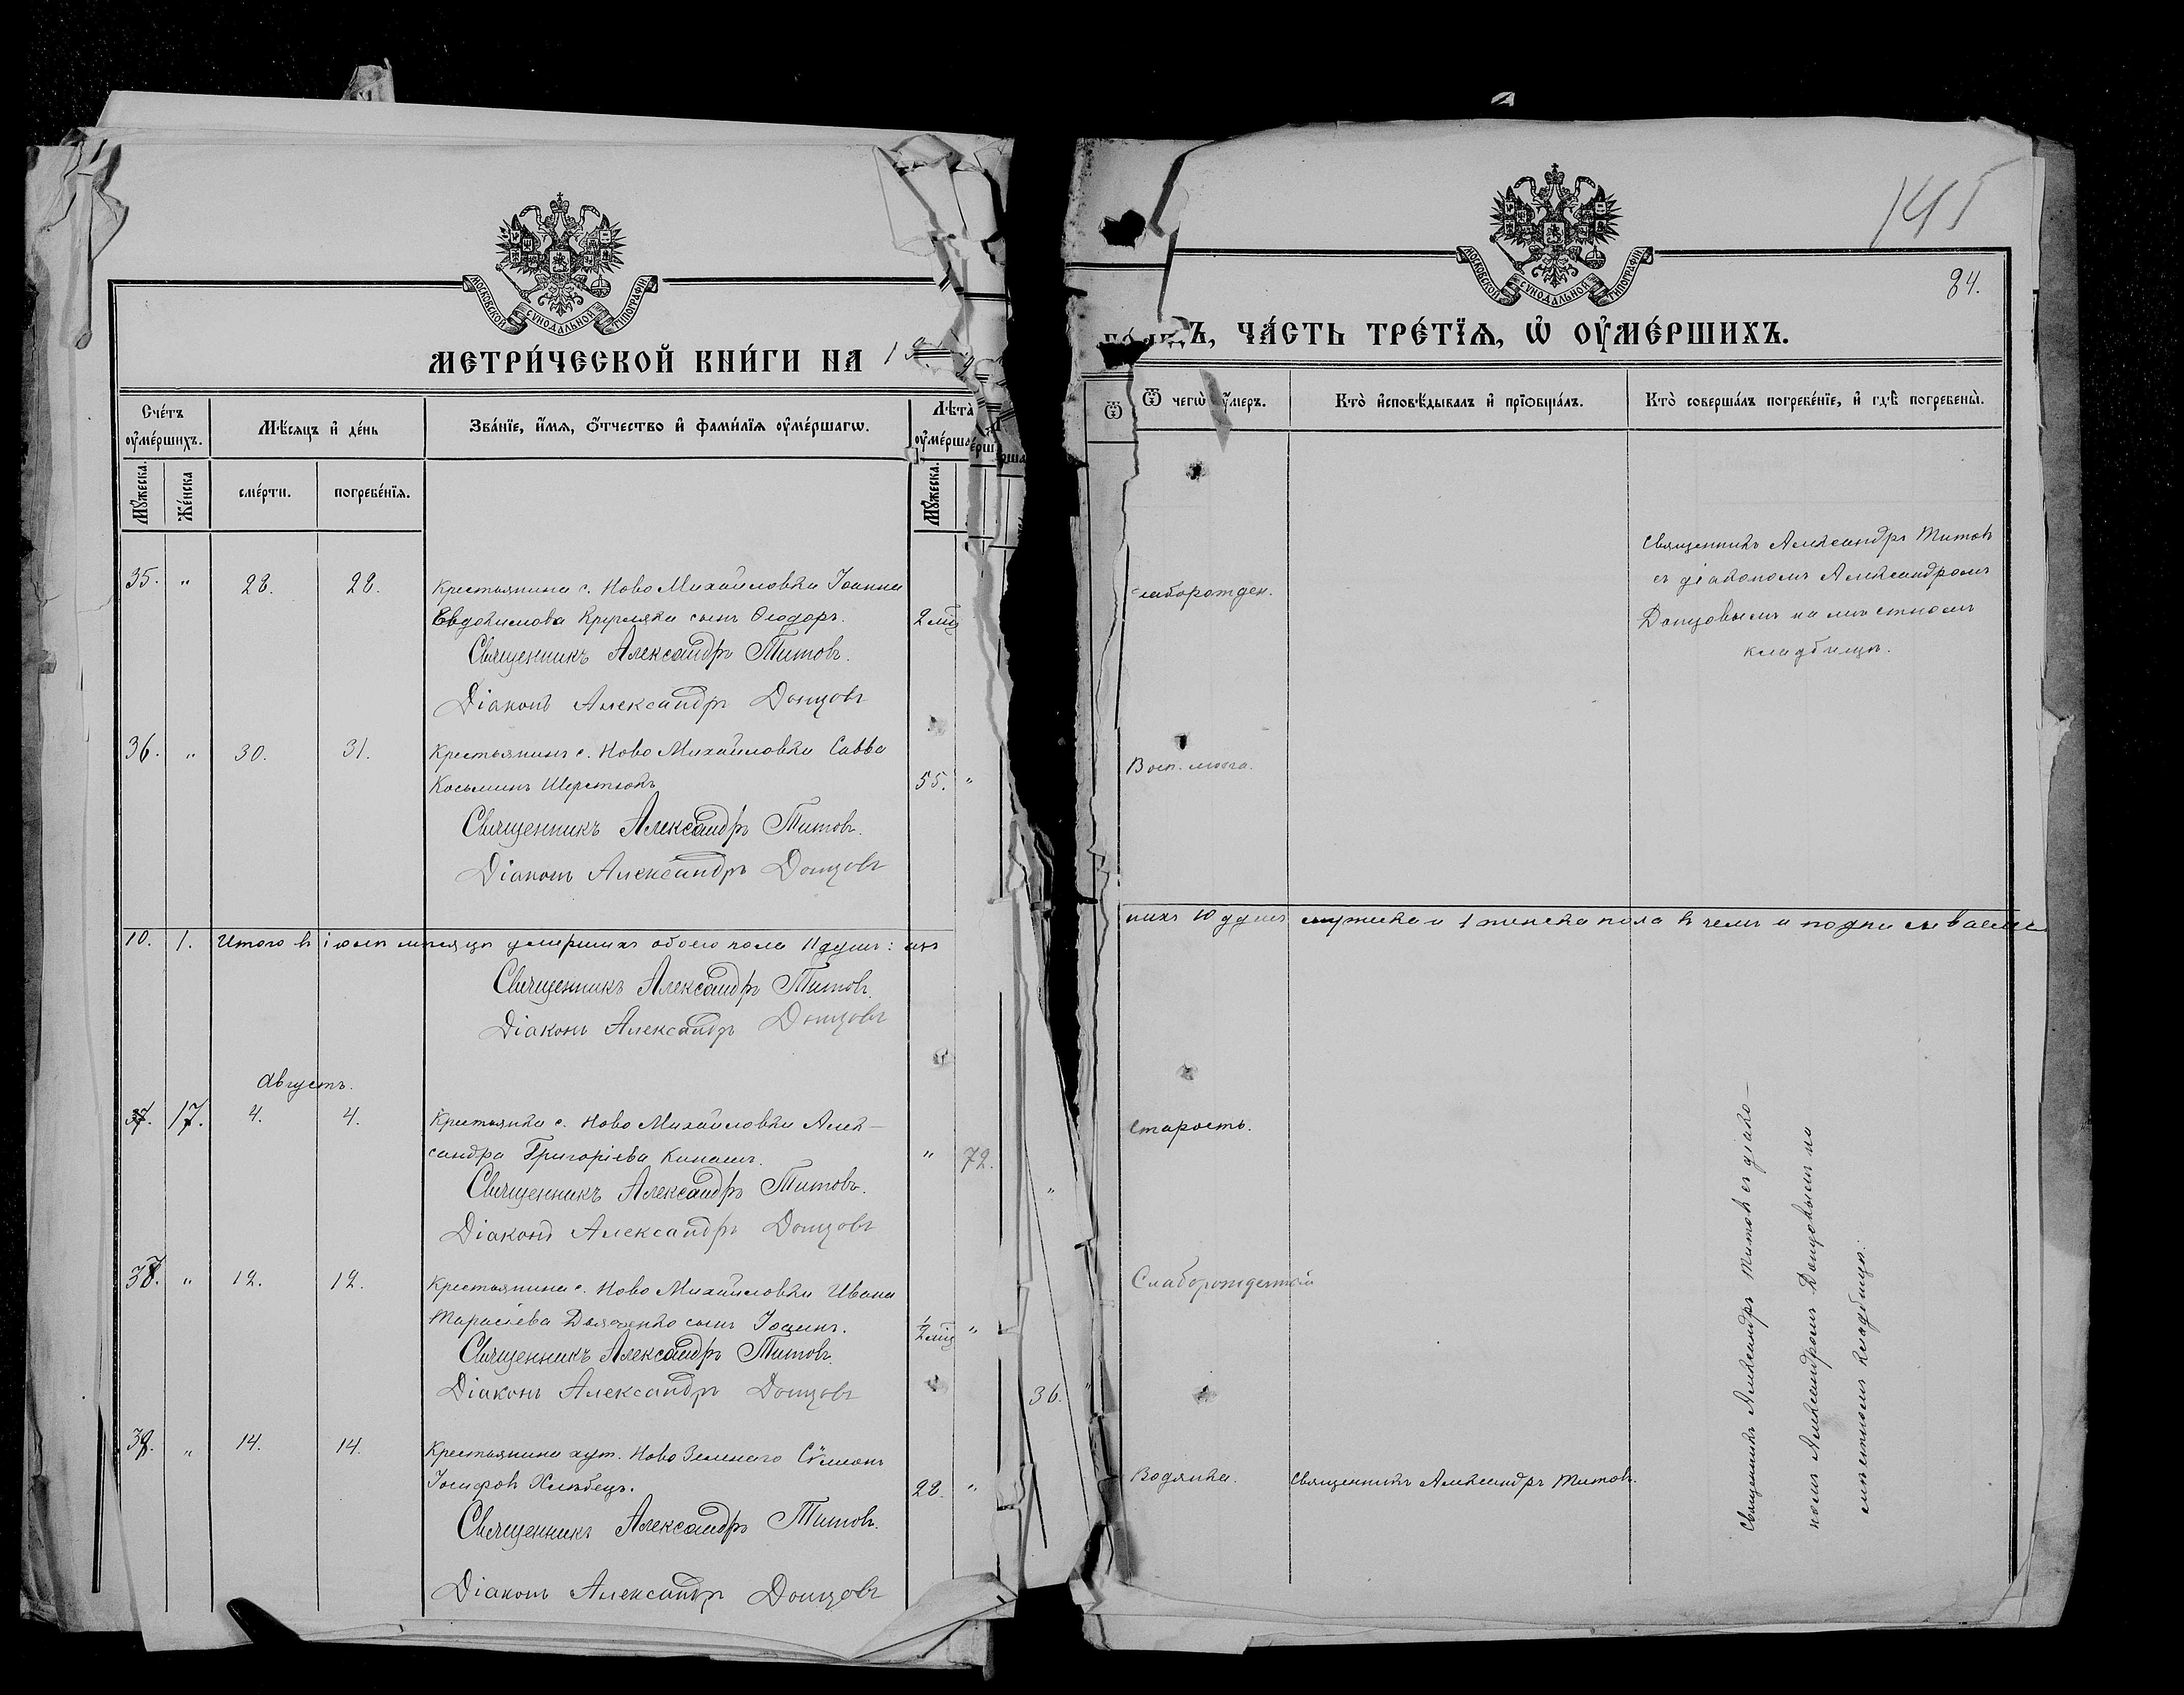 МОСКОВСКОЙ СѴНОДАЛЬНОЙ ТИПОГРАФІИ
МЕТРИ́ЧЕСКОЙ КНИ́ГИ НА 1
Сче́тъ оу҆ме́ршихъ.
Мѣ́сяцъ и҆ де́нь
Зва́нїе, и҆́мѧ, ѻ҆́тчество и҆ фами́лїѧ оу҆ме́ршагѡ.
Лѣта̀
Мꙋ́жеска.
Же́нска
сме́рти.
погребе́нїѧ.
Мꙋ́жеска.
35. " 28. 28. Крестьянина с. Ново Михайловки Іоанна
Евдокимова Кругляка сынъ Ѳеодоръ. 2 мѣц
Священникъ Александръ Титовъ.
Діаконъ Александръ Донцовъ
36. " 30. 31. Крестьянинъ с. Ново Михайловки Савва
Косьминъ Шерстюкъ 55. "
Священникъ Александръ Титовъ.
Діаконъ Александръ Донцовъ
10. 1. Итого въ іюлѣ мѣсяцѣ умершихъ обоего пола 11 душъ: изъ
Священникъ Александръ Титовъ.
Діаконъ Александръ Донцовъ
Августъ.
37. 17. 4. 4. Крестьянка с. Ново Михайловки Алек-
сандра Григоріева Кипаш. " 72.
Священникъ Александръ Титовъ.
Діаконъ Александръ Донцовъ
37. " 12. 12. Крестьянина с. Ново Михайловки Ивана
Тарасіева Дьяченко сынъ Іоаннъ. ½ мѣц "
Священникъ Александръ Титовъ.
Діаконъ Александръ Донцовъ
36.
38. " 14. 14. Крестьянина хут. Ново Зеленаго Сѷмеонъ
Іосифовъ Хлѣбецъ. 28. "
Священникъ Александръ Титовъ.
Діаконъ Александръ Донцовъ
145
84.
МОСКОВСКОЙ СѴНОДАЛЬНОЙ ТИПОГРАФІИ
Ъ, ЧА́СТЬ ТРЕ́ТЇѦ, Ѡ҆ ОУ҆МЕ́РШИХЪ.
Ѿ чегѡ̀ оу҆́меръ.
Кто̀ и҆сповѣ́дывалъ и҆ прїѡбща́лъ.
Кто̀ соверша́лъ погребе́нїе, и҆ гдѣ̀ погребены̀.
слаборожден.
Священникъ Александръ Титовъ
съ діакономъ Александромъ
Донцовымъ на мѣстномъ
кладбищѣ.
Восп. мозга.
нихъ 10 душъ мужеска и 1 женска пола въ чемъ и подписываемся
Старость.
Слаборожденный
Водянка. Священникъ Александръ Титовъ.
Священникъ Александръ Титовъ съ діако-
номъ Александромъ Донцовымъ на
мѣстномъ кладбищѣ.